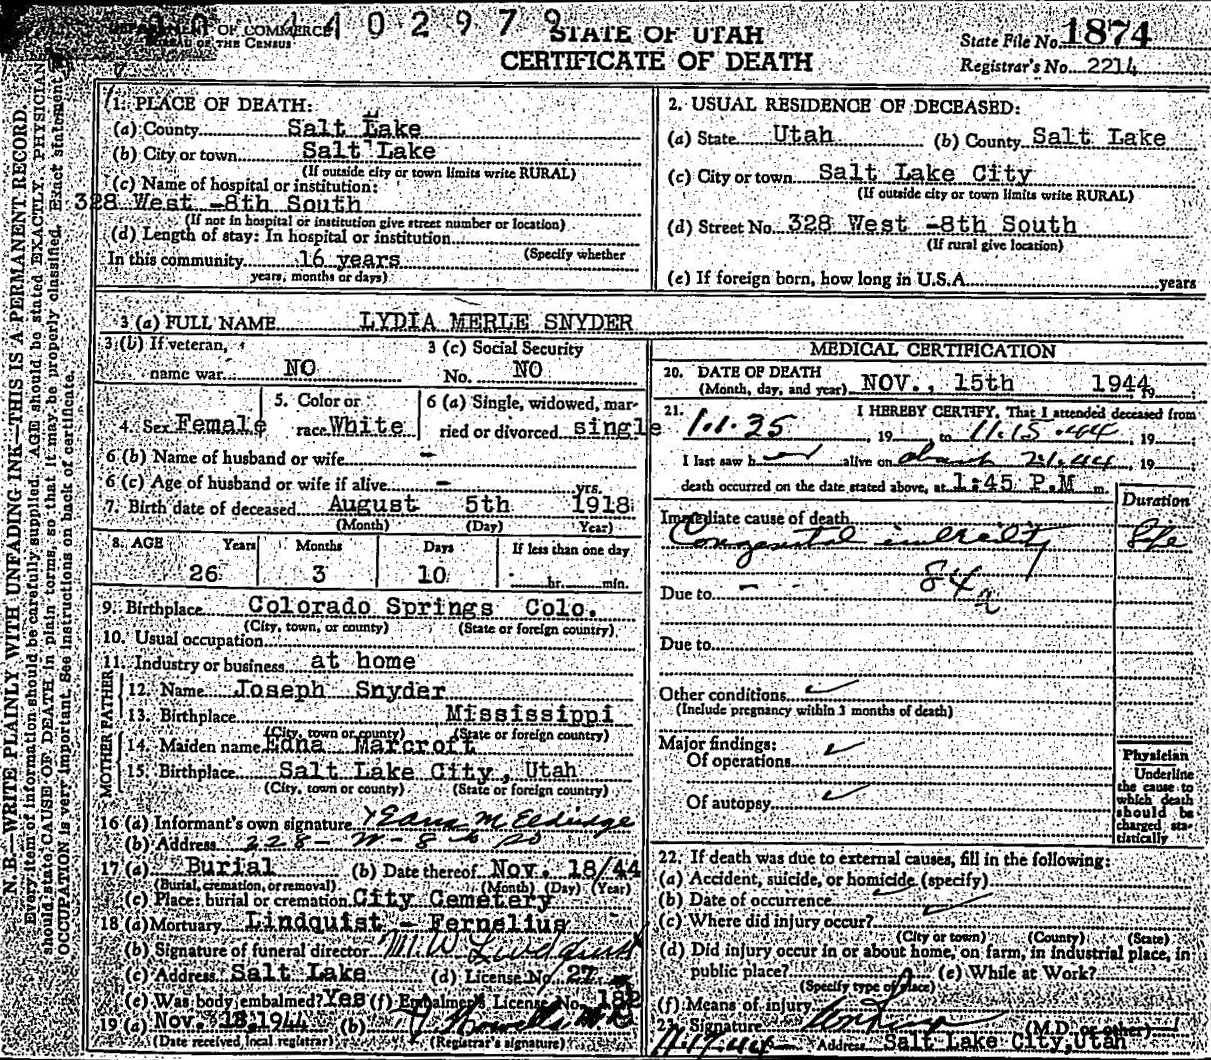 DEPARTMENT OF COMMERCE
BUREAU OF THE CENSUS
402979
STATE OF UTAH
CERTIFICATE OF DEATH
State File No. 1874
Registrar's No. 2214
N. B.—WRITE PLAINLY WITH UNFADING INK—THIS IS A PERMANENT RECORD.
Every item of information should be carefully supplied. AGE should be stated EXACTLY. PHYSICIAN
should state CAUSE OF DEATH in plain terms, so that it may be properly classified. Exact statement
OCCUPATION is very important. See instructions on back of certificate.
1. PLACE OF DEATH:
(a) County Salt Lake
(b) City or town Salt Lake
(If outside city or town limits write RURAL)
(c) Name of hospital or institution:
328 West -8th South
(If not in hospital or institution give street number or location)
(d) Length of stay: In hospital or institution
(Specify whether
In this community 16 years
years, months or days)
2. USUAL RESIDENCE OF DECEASED:
(a) State Utah (b) County Salt Lake
(c) City or town Salt Lake City
(If outside city or town limits write RURAL)
(d) Street No. 328 West -8th South
(If rural give location)
(e) If foreign born, how long in U.S.A. years
3 (a) FULL NAME LYDIA MERLE SNYDER
3 (b) If veteran,
name war NO
3 (c) Social Security
No. NO
4. Sex Female
5. Color or
race White
6 (a) Single, widowed, mar-
ried or divorced single
6 (b) Name of husband or wife -
6 (c) Age of husband or wife if alive - yrs.
7. Birth date of deceased August 5th 1918
(Month) (Day) Year)
8. AGE Years Months Days If less than one day
26 3 10 hr. min.
9. Birthplace Colorado Springs Colo.
(City, town, or county) (State or foreign country)
10. Usual occupation
11. Industry or business at home
FATHER
12. Name Joseph Snyder
13. Birthplace Mississippi
(City, town or county) (State or foreign country)
MOTHER
14. Maiden name Edna Marcroft
15. Birthplace Salt Lake City, Utah
(City, town or county) (State or foreign country)
16 (a) Informant's own signature Edna M Eldridge
(b) Address 228 - W - 8th So
17 (a) Burial (b) Date thereof Nov. 18/44
(Burial, cremation, or removal) (Month) (Day) (Year)
(c) Place: burial or cremation City Cemetery
18 (a) Mortuary Lindquist - Fernelius
(b) Signature of funeral director M.W. Lindquist
(c) Address Salt Lake (d) License No. 27
(e) Was body embalmed? Yes (f) Embalmer's License No. 182
19 (a) Nov. 18, 1944 (b)
(Date received local registrar) (Registrar's signature)
MEDICAL CERTIFICATION
20. DATE OF DEATH
(Month, day, and year) NOV., 15th 1944
21. I HEREBY CERTIFY, That I attended deceased from
1.1.35, 19 to 11.15.44, 19
I last saw h alive on 44, 19
death occurred on the date stated above, at 1:45 P.M m.
Duration
Immediate cause of death
Congenital imbecility Life
84a
Due to -
Due to
Other conditions
(Include pregnancy within 3 months of death)
Major findings:
Of operations
Of autopsy
Physician
Underline
the cause to
which death
should be
charged sta-
tistically
22. If death was due to external causes, fill in the following:
(a) Accident, suicide, or homicide (specify)
(b) Date of occurrence
(c) Where did injury occur?
(City or town) (County) (State)
(d) Did injury occur in or about home, on farm, in industrial place, in
public place? (e) While at Work?
(Specify type of place)
(f) Means of injury
23. Signature (M.D. or other)
11.17.44 Address Salt Lake City, Utah